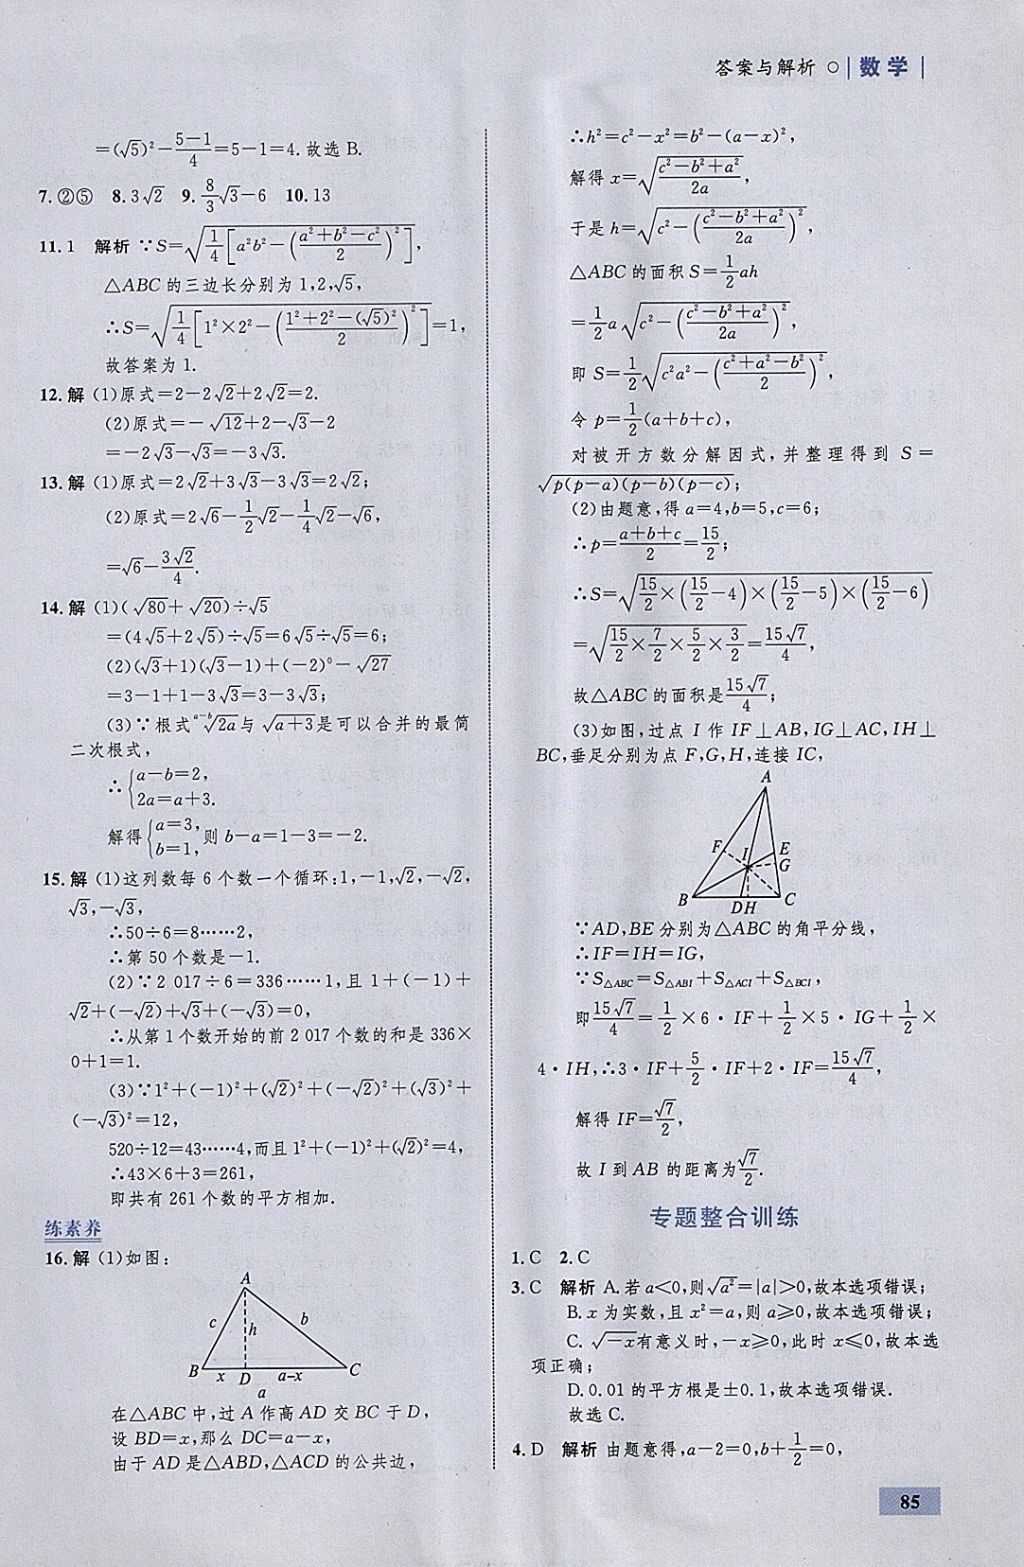 答案与解析 ○ | 数学 |
=(√5)²-(5-1)/4=5-1=4.故选 B.
7.②⑤ 8.3√2 9.8/3√3-6 10.13
11.1 解析 ∵S=√(1/4[a²b²-((a²+b²-c²)/2)²]),
△ABC 的三边长分别为 1,2,√5,
∴S=√(1/4[1²×2²-((1²+2²-(√5)²)/2)²])=1,
故答案为 1.
12.解 (1)原式=2-2√2+2√2=2.
(2)原式=-√12+2-√3-2
=-2√3-√3=-3√3.
13.解 (1)原式=2√2+3√3-3√3=2√2;
(2)原式=2√6-1/2√2-1/4√2-√6,
=√6-3√2/4.
14.解 (1)(√80+√20)÷√5
=(4√5+2√5)÷√5=6√5÷√5=6;
(2)(√3+1)(√3-1)+(-2)⁰-√27
=3-1+1-3√3=3-3√3;
(3)∵根式 ᵃ⁻ᵇ√2a与 √a+3是可以合并的最简
二次根式,
∴{a-b=2,
2a=a+3.
解得{a=3,
b=1,则 b-a=1-3=-2.
15.解 (1)这列数每 6 个数一个循环:1,-1,√2,-√2,
√3,-√3,
∴50÷6=8……2,
∴第 50 个数是-1.
(2)∵2 017÷6=336……1,且 1+(-1)+
√2+(-√2)+√3+(-√3)=0,
∴从第 1 个数开始的前 2 017 个数的和是 336×
0+1=1.
(3)∵1²+(-1)²+(√2)²+(-√2)²+(√3)²+
(-√3)²=12,
520÷12=43……4,而且 1²+(-1)²+(√2)²=4,
∴43×6+3=261,
即共有 261 个数的平方相加.
练素养
16.解 (1)如图:
A
c h b
B x D a-x C
a
在△ABC 中,过 A 作高 AD 交 BC 于 D,
设 BD=x,那么 DC=a-x,
由于 AD 是△ABD,△ACD 的公共边,
∴h²=c²-x²=b²-(a-x)²,
解得 x=√((c²-b²+a²)/2a),
于是 h=√(c²-((c²-b²+a²)/2a)²),
△ABC 的面积 S=1/2ah
=1/2a√(c²-((c²-b²+a²)/2a)²),
即 S=1/2√(c²a²-((c²+a²-b²)/2)²),
令 p=1/2(a+b+c),
对被开方数分解因式,并整理得到 S=
√p(p-a)(p-b)(p-c);
(2)由题意,得 a=4,b=5,c=6;
∴p=(a+b+c)/2=15/2;
∴S=√(15/2×(15/2-4)×(15/2-5)×(15/2-6))
=√(15/2×7/2×5/2×3/2)=15√7/4,
故△ABC 的面积是15√7/4;
(3)如图,过点 I 作 IF⊥AB,IG⊥AC,IH⊥
BC,垂足分别为点 F,G,H,连接 IC,
A
F I E
G
B DH C
∵AD,BE 分别为△ABC 的角平分线,
∴IF=IH=IG,
∵S△ABC=S△ABI+S△ACI+S△BCI,
即15√7/4=1/2×6·IF+1/2×5·IG+1/2×
4·IH,∴3·IF+5/2·IF+2·IF=15√7/4,
解得 IF=√7/2,
故 I 到 AB 的距离为√7/2.
专题整合训练
1.C 2.C
3.C 解析 A.若 a<0,则√a²=|a|>0,故本选项错误;
B.x 为实数,且 x²=a,则 a≥0,故本选项错误;
C.√-x有意义时,-x≥0,此时 x≤0,故本选
项正确;
D.0.01 的平方根是±0.1,故本选项错误.
故选 C.
4.D 解析 由题意得,a-2=0,b+1/2=0,
85